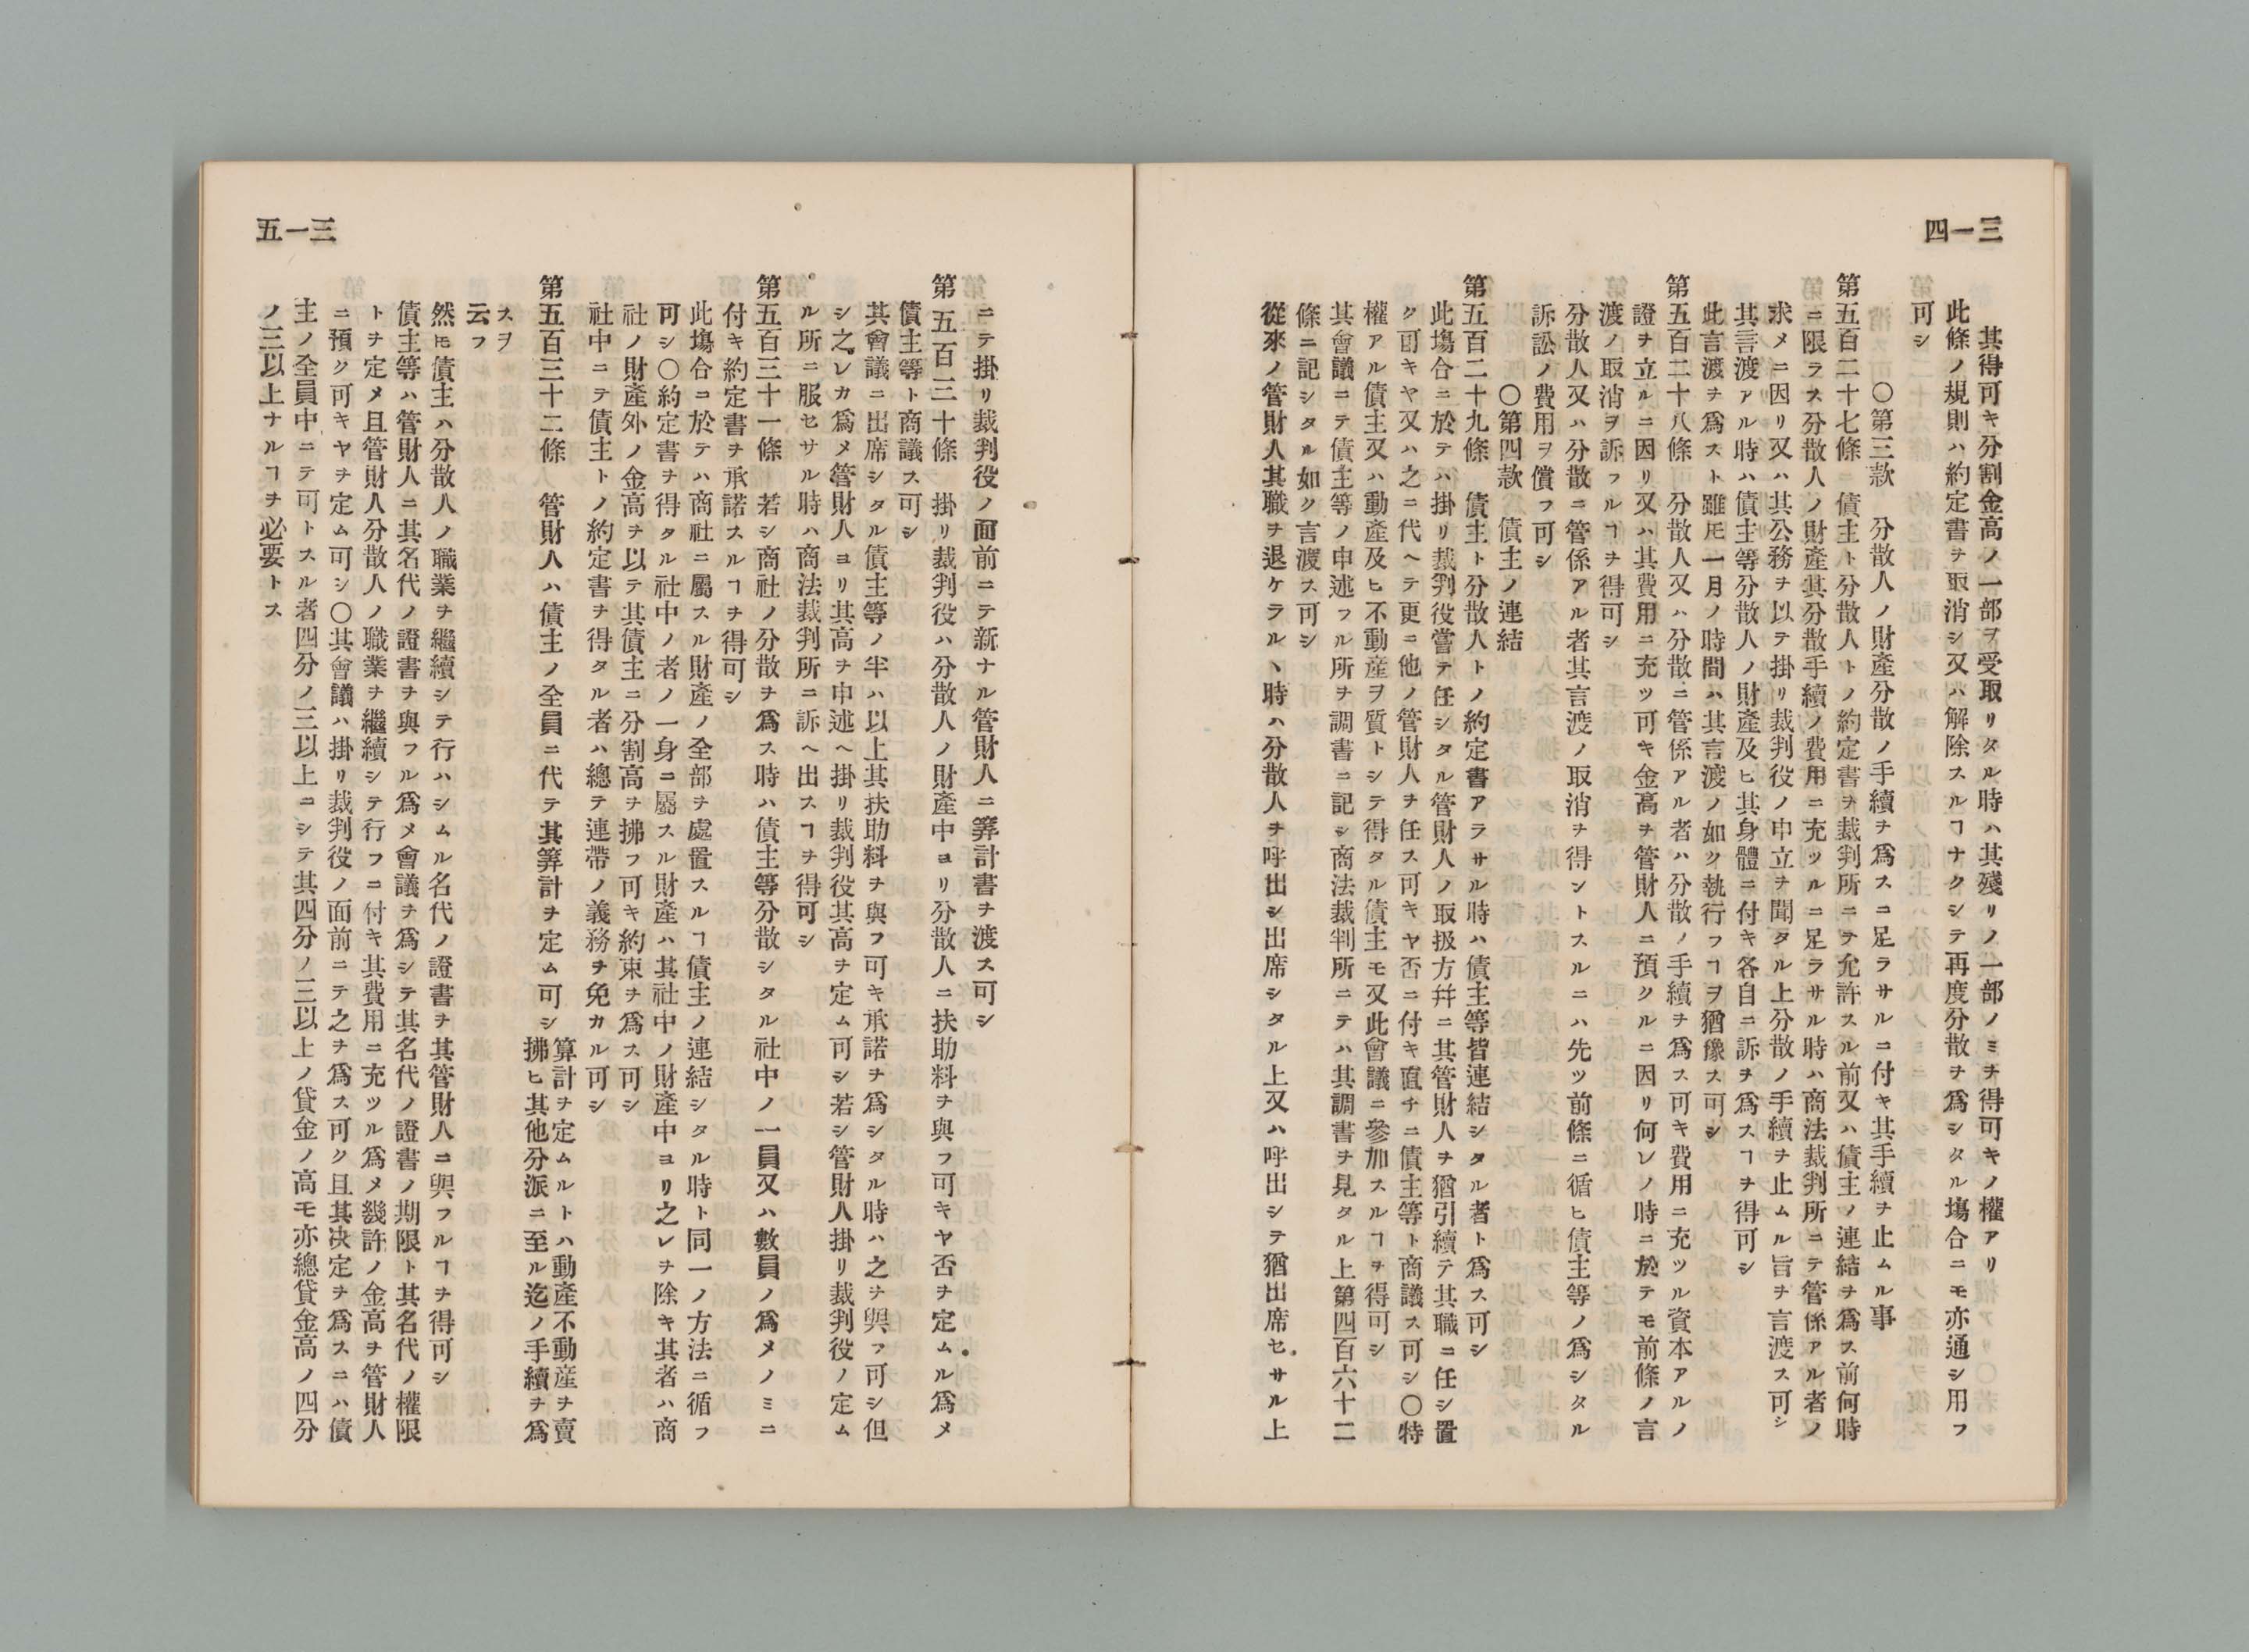 三一四
其得可キ分割金高ノ一部ヲ受取リタル時ハ其殘リノ一部ノミヲ得可キノ權アリ
此條ノ規則ハ約定書ヲ取消シ又ハ解除スルヿナクシテ再度分散ヲ爲シタル塲合ニモ亦通シ用フ
可シ
〇第三款　分散人ノ財產分散ノ手續ヲ爲スニ足ラサルニ付キ其手續ヲ止ムル事
第五百二十七條　債主ト分散人トノ約定書ヲ裁判所ニテ允許スル前又ハ債主ノ連結ヲ爲ス前何時
ニ限ラス分散人ノ財產其分散手續ノ費用ニ充ツルニ足ラサル時ハ商法裁判所ニテ管係アル者ノ
求メニ因リ又ハ其公務ヲ以テ掛リ裁判役ノ申立ヲ聞タル上分散ノ手續ヲ止ムル旨ヲ言渡ス可シ
其言渡アル時ハ債主等分散人ノ財產及ヒ其身體ニ付キ各自ニ訴ヲ爲スヿヲ得可シ
此言渡ヲ爲スト雖𪜈一月ノ時間ハ其言渡ノ如ク執行フヿヲ猶豫ス可シ
第五百二十八條　分散人又ハ分散ニ管係アル者ハ分散ノ手續ヲ爲ス可キ費用ニ充ツル資本アルノ
證ヲ立ルニ因リ又ハ其費用ニ充ツ可キ金高ヲ管財人ニ預クルニ因リ何レノ時ニ於テモ前條ノ言
渡ノ取消ヲ訴フルヿヲ得可シ
分散人又ハ分散ニ管係アル者其言渡ノ取消ヲ得ントスルニハ先ツ前條ニ循ヒ債主等ノ爲シタル
訴訟ノ費用ヲ償フ可シ
〇第四款　債主ノ連結
第五百二十九條　債主ト分散人トノ約定書アラサル時ハ債主等皆連結シタル者ト爲ス可シ
此塲合ニ於テハ掛リ裁判役嘗テ任シタル管財人ノ取扱方幷ニ其管財人ヲ猶引續テ其職ニ任シ置
ク可キヤ又ハ之ニ代ヘテ更ニ他ノ管財人ヲ任ス可キヤ否ニ付キ直チニ債主等ト商議ス可シ〇特
權アル債主又ハ動產及ヒ不動產ヲ質トシテ得タル債主モ又此會議ニ參加スルヿヲ得可シ
其會議ニテ債主等ノ申述フル所ヲ調書ニ記シ商法裁判所ニテハ其調書ヲ見タル上第四百六十二
條ニ記シタル如ク言渡ス可シ
從來ノ管財人其職ヲ退ケラルヽ時ハ分散人ヲ呼出シ出席シタル上又ハ呼出シテ猶出席セサル上
三一五
ニテ掛リ裁判役ノ面前ニテ新ナル管財人ニ筭計書ヲ渡ス可シ
第五百三十條　掛リ裁判役ハ分散人ノ財產中ヨリ分散人ニ扶助料ヲ與フ可キヤ否ヲ定ムル爲メ
債主等ト商議ス可シ
其會議ニ出席シタル債主等ノ半ハ以上其扶助料ヲ與フ可キ承諾ヲ爲シタル時ハ之ヲ與フ可シ但
シ之レカ爲メ管財人ヨリ其高ヲ申述ヘ掛リ裁判役其高ヲ定ム可シ若シ管財人掛リ裁判役ノ定ム
ル所ニ服セサル時ハ商法裁判所ニ訴ヘ出スヿヲ得可シ
第五百三十一條　若シ商社ノ分散ヲ爲ス時ハ債主等分散シタル社中ノ一員又ハ數員ノ爲メノミニ
付キ約定書ヲ承諾スルヿヲ得可シ
此塲合ニ於テハ商社ニ屬スル財產ノ全部ヲ處置スルヿ債主ノ連結シタル時ト同一ノ方法ニ循フ
可シ〇約定書ヲ得タル社中ノ者ノ一身ニ屬スル財產ハ其社中ノ財產中ヨリ之レヲ除キ其者ハ商
社ノ財產外ノ金高ヲ以テ其債主ニ分割高ヲ拂フ可キ約束ヲ爲ス可シ
社中ニテ債主トノ約定書ヲ得タル者ハ總テ連帶ノ義務ヲ免カル可シ
第五百三十二條　管財人ハ債主ノ全員ニ代テ其筭計ヲ定ム可シ
算計ヲ定ムルトハ動產不動產ヲ賣
拂ヒ其他分派ニ至ル迄ノ手續ヲ爲
スヲ
云フ
然𪜈債主ハ分散人ノ職業ヲ繼續シテ行ハシムル名代ノ證書ヲ其管財人ニ與フルヿヲ得可シ
債主等ハ管財人ニ其名代ノ證書ヲ與フル爲メ會議ヲ爲シテ其名代ノ證書ノ期限ト其名代ノ權限
トヲ定メ且管財人分散人ノ職業ヲ繼續シテ行フニ付キ其費用ニ充ツル爲メ幾許ノ金高ヲ管財人
ニ預ク可キヤヲ定ム可シ〇其會議ハ掛リ裁判役ノ面前ニテ之ヲ爲ス可ク且其決定ヲ爲スニハ債
主ノ全員中ニテ可トスル者四分ノ三以上ニシテ其四分ノ三以上ノ貸金ノ高モ亦總貸金高ノ四分
ノ三以上ナルヿヲ必要トス